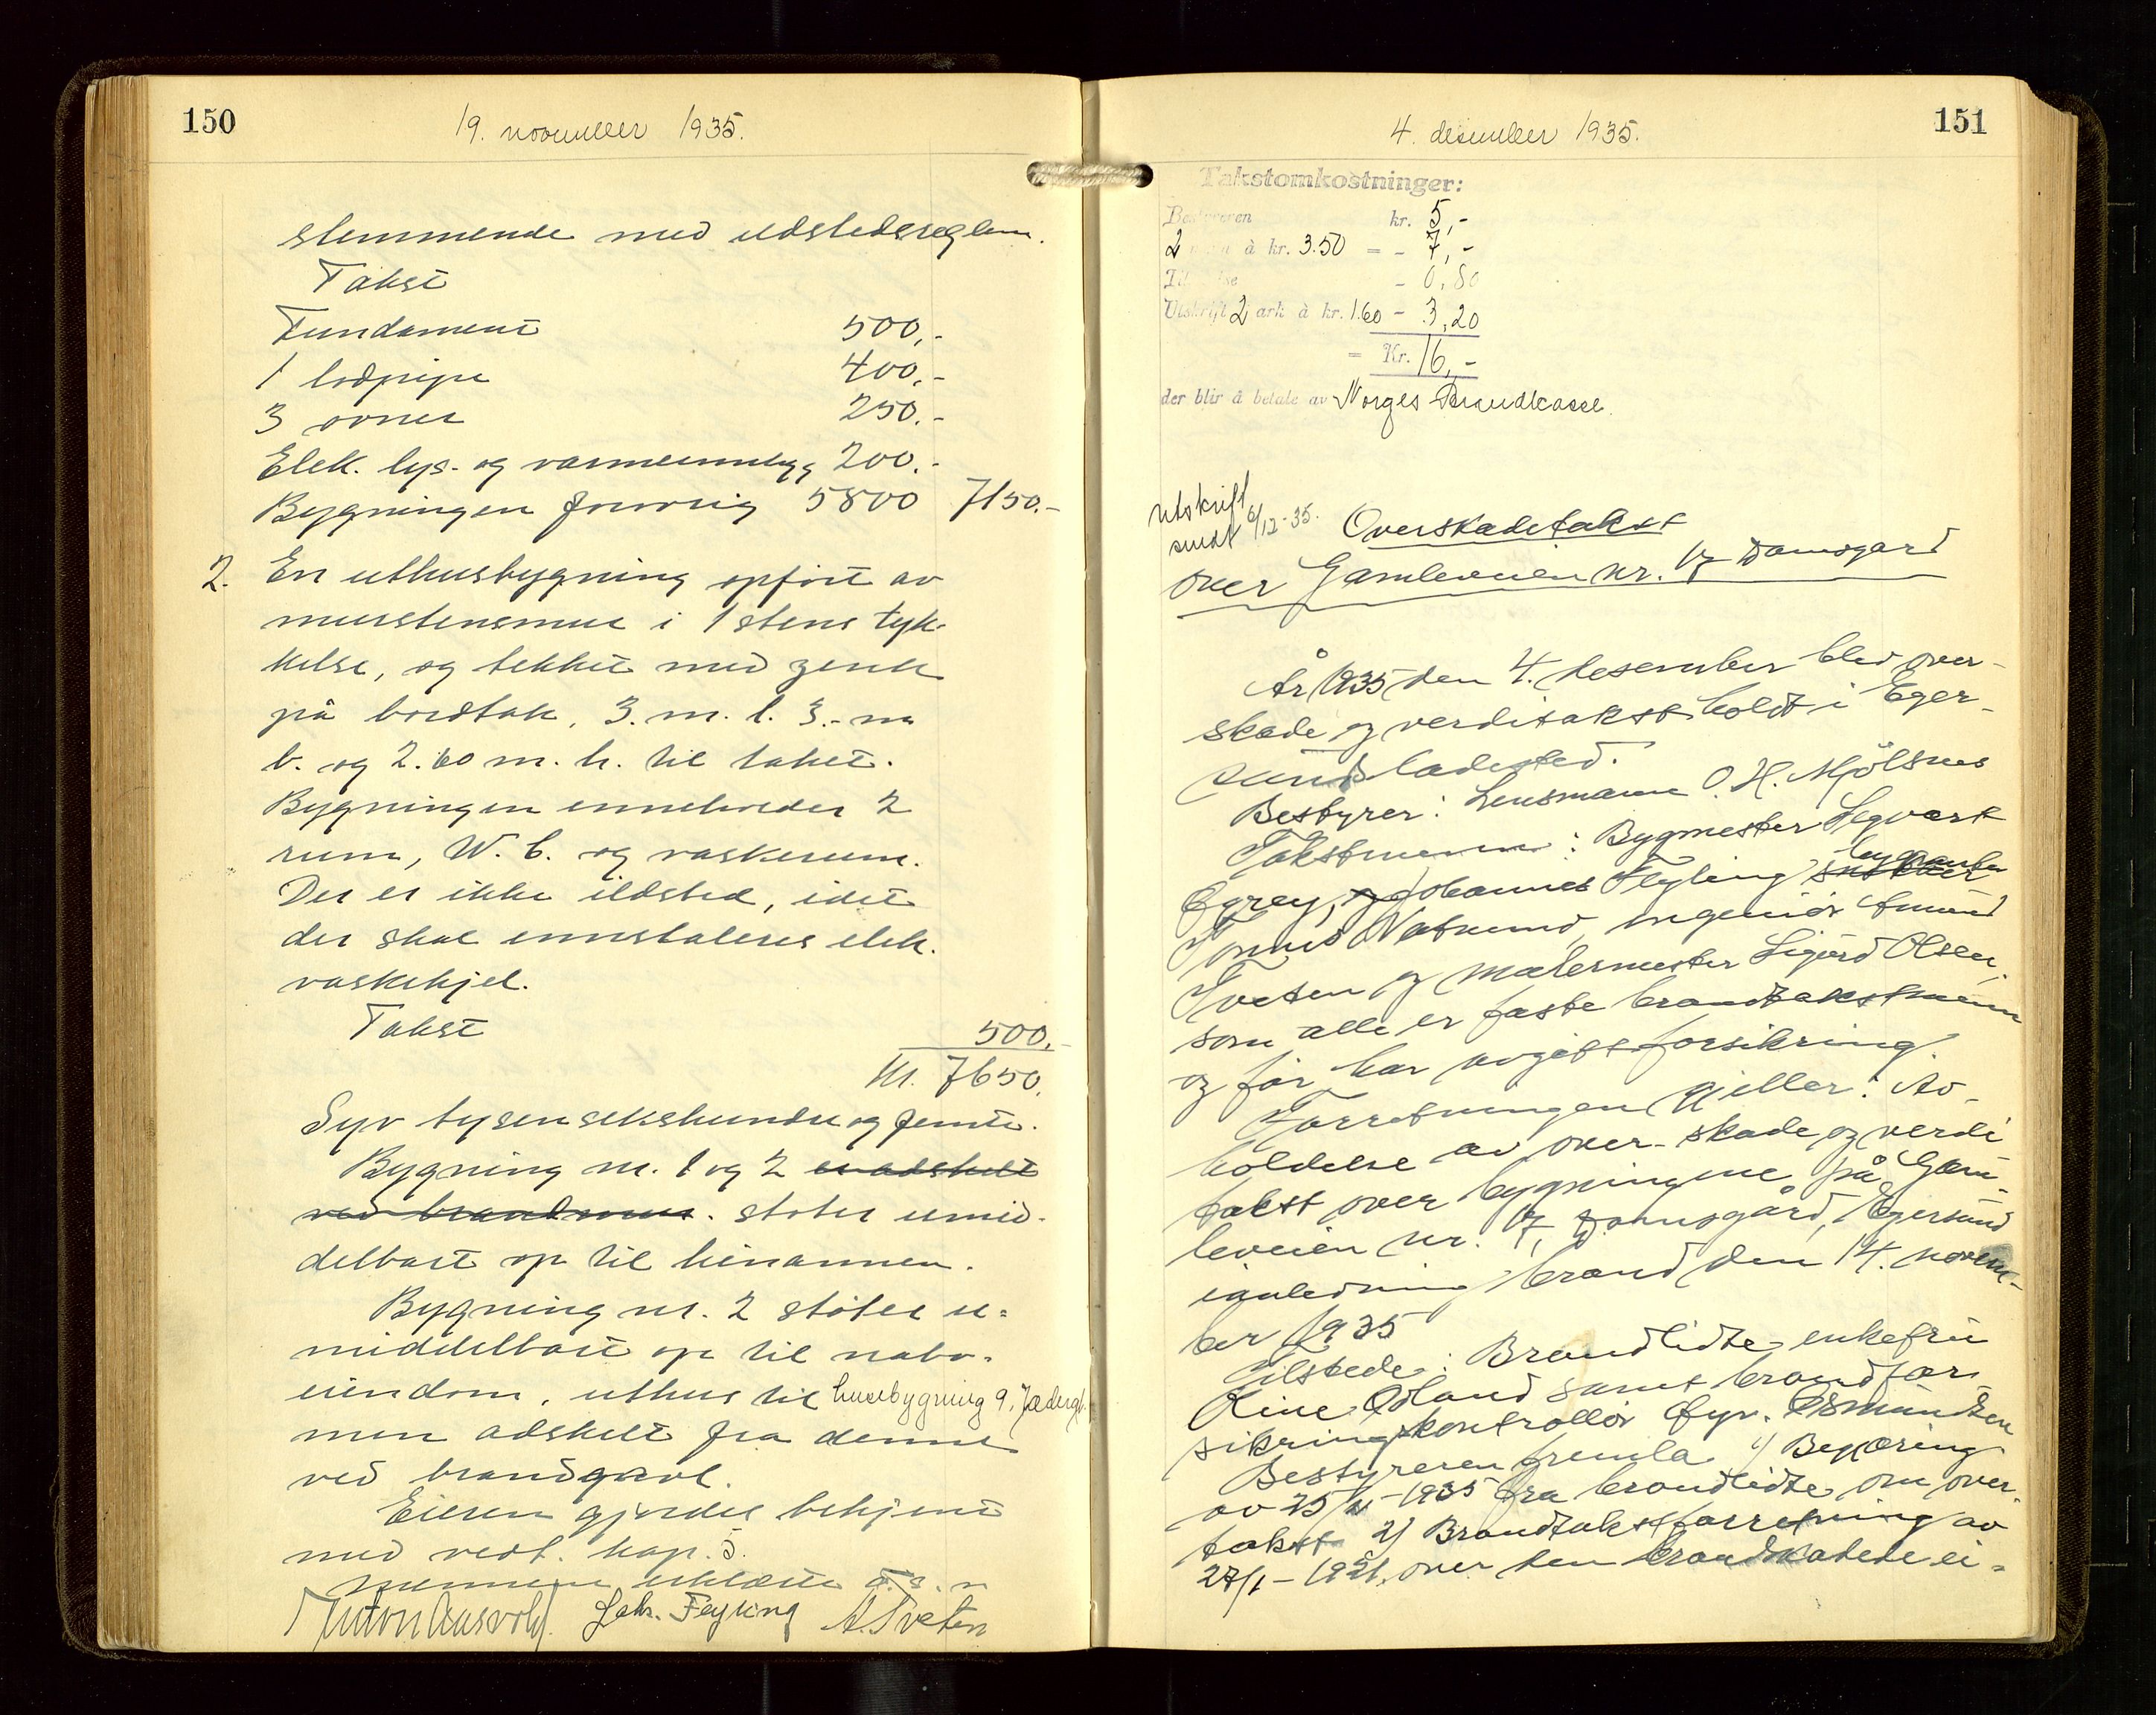 150
19. november 1935.
stemmende med ildstedsreglem.
Takst
Fundament 500,-
1 lodpipe 400,-
3 ovner 250.-
Elek. lys- og varmeinnlegg 200.-
Bygningen forøvrig 5800 7150.-
2. En uthusbygning opført av
murstensmur i 1 stens tyk-
kelse, og tekket med zenk
på bordtak, 3. m. l. 3.- m
b. og 2.60 m. h. til taket.
Bygningen inneholder 2
rum, W. C. og vaskerum.
Der er ikke ildsted, idet
der skal innstaleres elek.
vaskekjel.
Takst 500.-
Kr. 7650.
Syv tusen sekshundre og femti.
Bygning nr. 1 og 2 er adskilt
ved brandmur. støter umid-
delbart op til hinannen.
Bygning nr. 2 støter u=
middelbart op til nabo-
eiendom, uthus til husebygning 9, Jædergt.
men adskilt fra denne
ved brandgavl.
Eieren gjordes bekjent
med vedt. kap. 5.
Mennene erklærte
Anton Aasvold. Johs. Feyling A. Tveten
151
4. desember 1935.
Takstomkostninger:
Bestyreren kr. 5,-
2 menn à kr. 3.50 = - 7,-
- 0,80
Utskrift 2 ark à kr. 1.60 - 3,20
= Kr. 16,-
der blir å betale av Norges Brandkasse.
Utskrift
sendt 6/12-35.
Overskadetakst
over Gamleveien nr. 17 Damsgård
År 1935 den 4. desember blev over-
skade og verditakst holdt i Eger-
sund ladested.
Bestyrer: Lensmann O. H. Mjølsnes
Takstmenn: Bygmester Sigvart
Egrey, og Johannes Feyling snekker
Tønnes Natsund, ingeniør Amund
Tveten og malermester Sigurd Olsen,
som alle er faste brandtakstmenn
og før har avgitt forsikring.
Forretningen gjeller: Av-
holdelse av over- skade og verdi
takst over bygningene på Gam-
leveien nr. 17, Damsgård, Egersund
i anledning brand den 14. novem-
ber 1935
Tilstede: Brandlidte enkefru
Line Ødland samt brandfor-
sikringskontrollør Øyv. Osmundsen
Bestyreren fremla 1) Begjæring
av 25/11-1935 fra brandlidte om over-
takst 2) Brandtakstforretning av
27/1-1921, over den brandskadede ei=